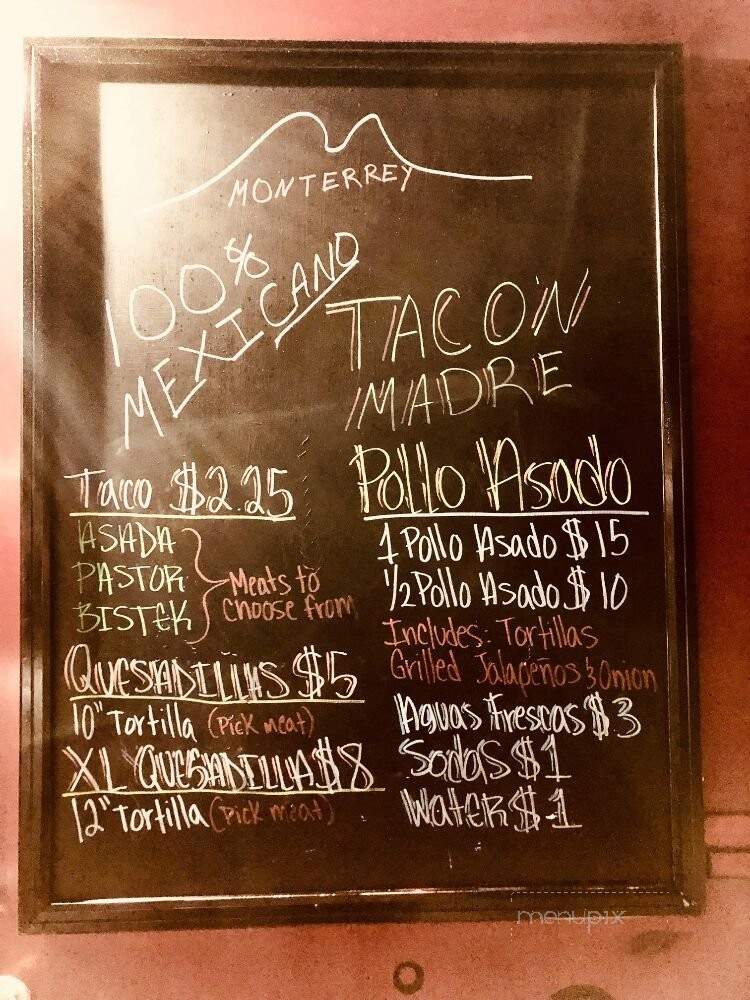 MONTERREY
100%
MEXICANO
TACON
MADRE
Taco $2.25
ASADA
PASTOR
BISTEK
Meats to
choose from
QUESADILLAS $5
10" Tortilla (Pick meat)
XL QUESADILLA $8
12" Tortilla (Pick meat)
Pollo Asado
1 Pollo Asado $15
1/2 Pollo Asado $10
Includes: Tortillas
Grilled Jalapeños & Onion
Aguas Frescas $3
Sodas $1
Water $1
menupix